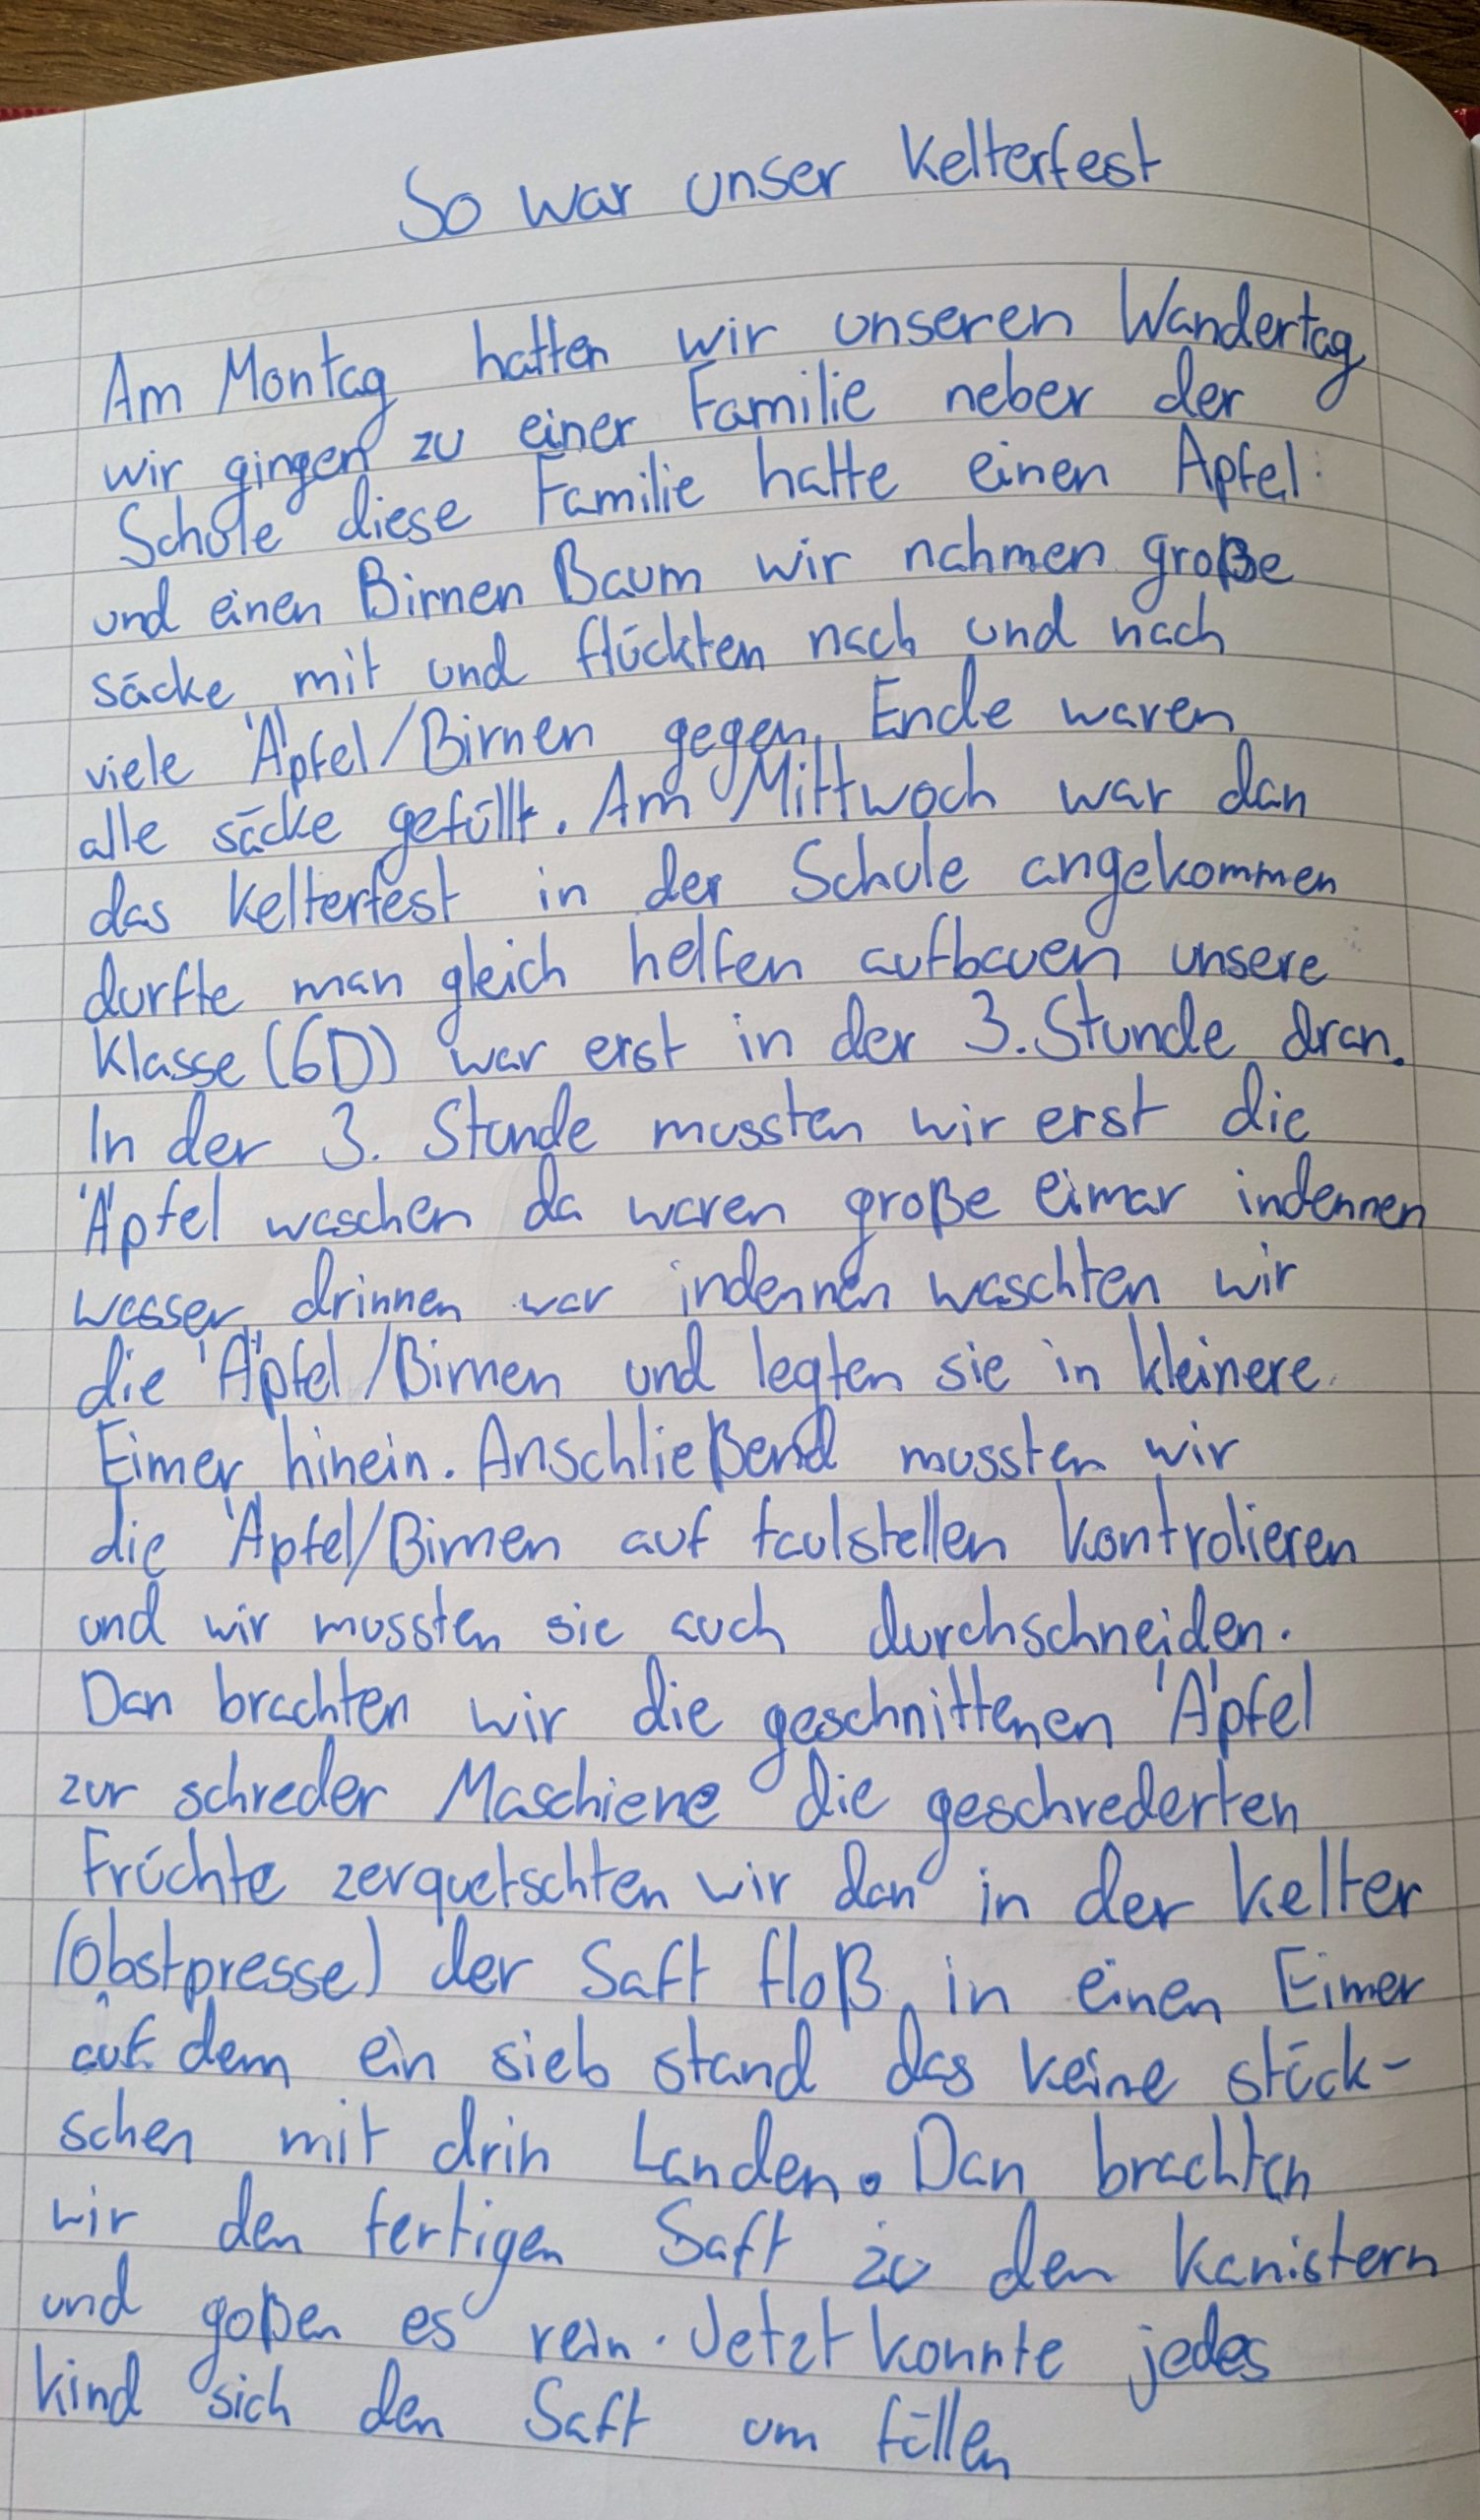 So war unser Kelterfest
Am Montag hatten wir unseren Wandertag
wir gingen zu einer Familie neber der
Schule diese Familie hatte einen Apfel
und einen Birnen Baum wir nahmen große
säcke mit und flückten nach und nach
viele Äpfel/Birnen gegen Ende waren
alle säcke gefüllt. Am Mittwoch war dan
das Kelterfest in der Schule angekommen
durfte man gleich helfen aufbauen unsere
Klasse (6D) war erst in der 3. Stunde dran.
In der 3. Stunde mussten wir erst die
Äpfel waschen da waren große eimar indennen
wasser drinnen war indennen waschten wir
die Äpfel/Birnen und legten sie in kleinere
Eimer hinein. Anschließend mussten wir
die Äpfel/Birnen auf faulstellen kontrolieren
und wir mussten sie auch durchschneiden.
Dan brachten wir die geschnittenen Äpfel
zur schreder Maschiene die geschrederten
Früchte zerquetschten wir dan in der Kelter
(Obstpresse) der Saft floß in einen Eimer
auf dem ein sieb stand das keine stück-
schen mit drin Landen. Dan brachten
wir den fertigen Saft zu den Kanistern
und goßen es rein. Jetzt konnte jedes
kind sich den Saft um füllen